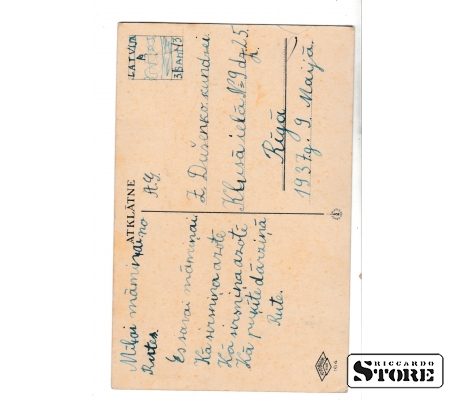 ATKLĀTNE
Mīļai māmiņai no
Rutes.
Es savai māmiņai
Kā sirsniņa azotē
Kā sirsniņa azotē
Kā puķīte dārziņā
Rute.
LATVIJA
A. G.
Z. Dušenko kundzei
Klusā ielā № 9 dz. 25.
Rīgā
1937g. 9. Maijā
RICCARDO
STORE